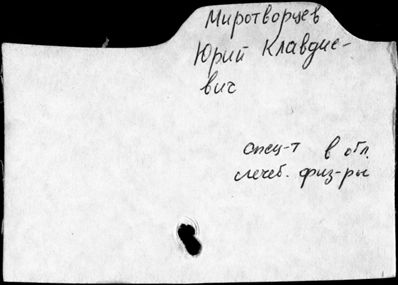 Миротворцев
Юрий Клавдие-
вич
спец-т в обл.
лечеб. физ-ры